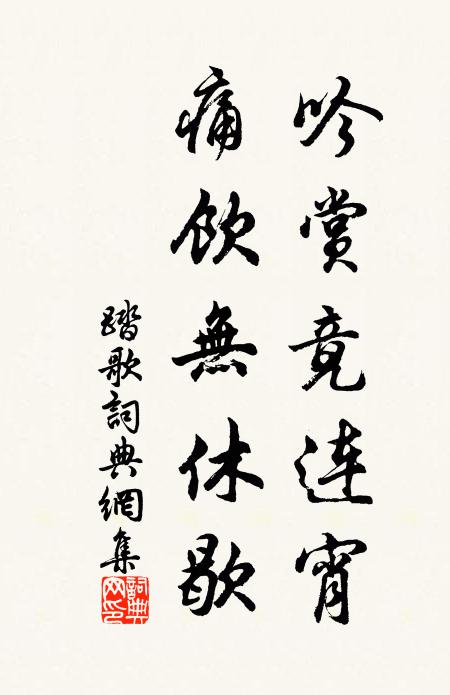 吟賞竟連宵
痛飲無休歇
踏歌詞典網集
詞典网印